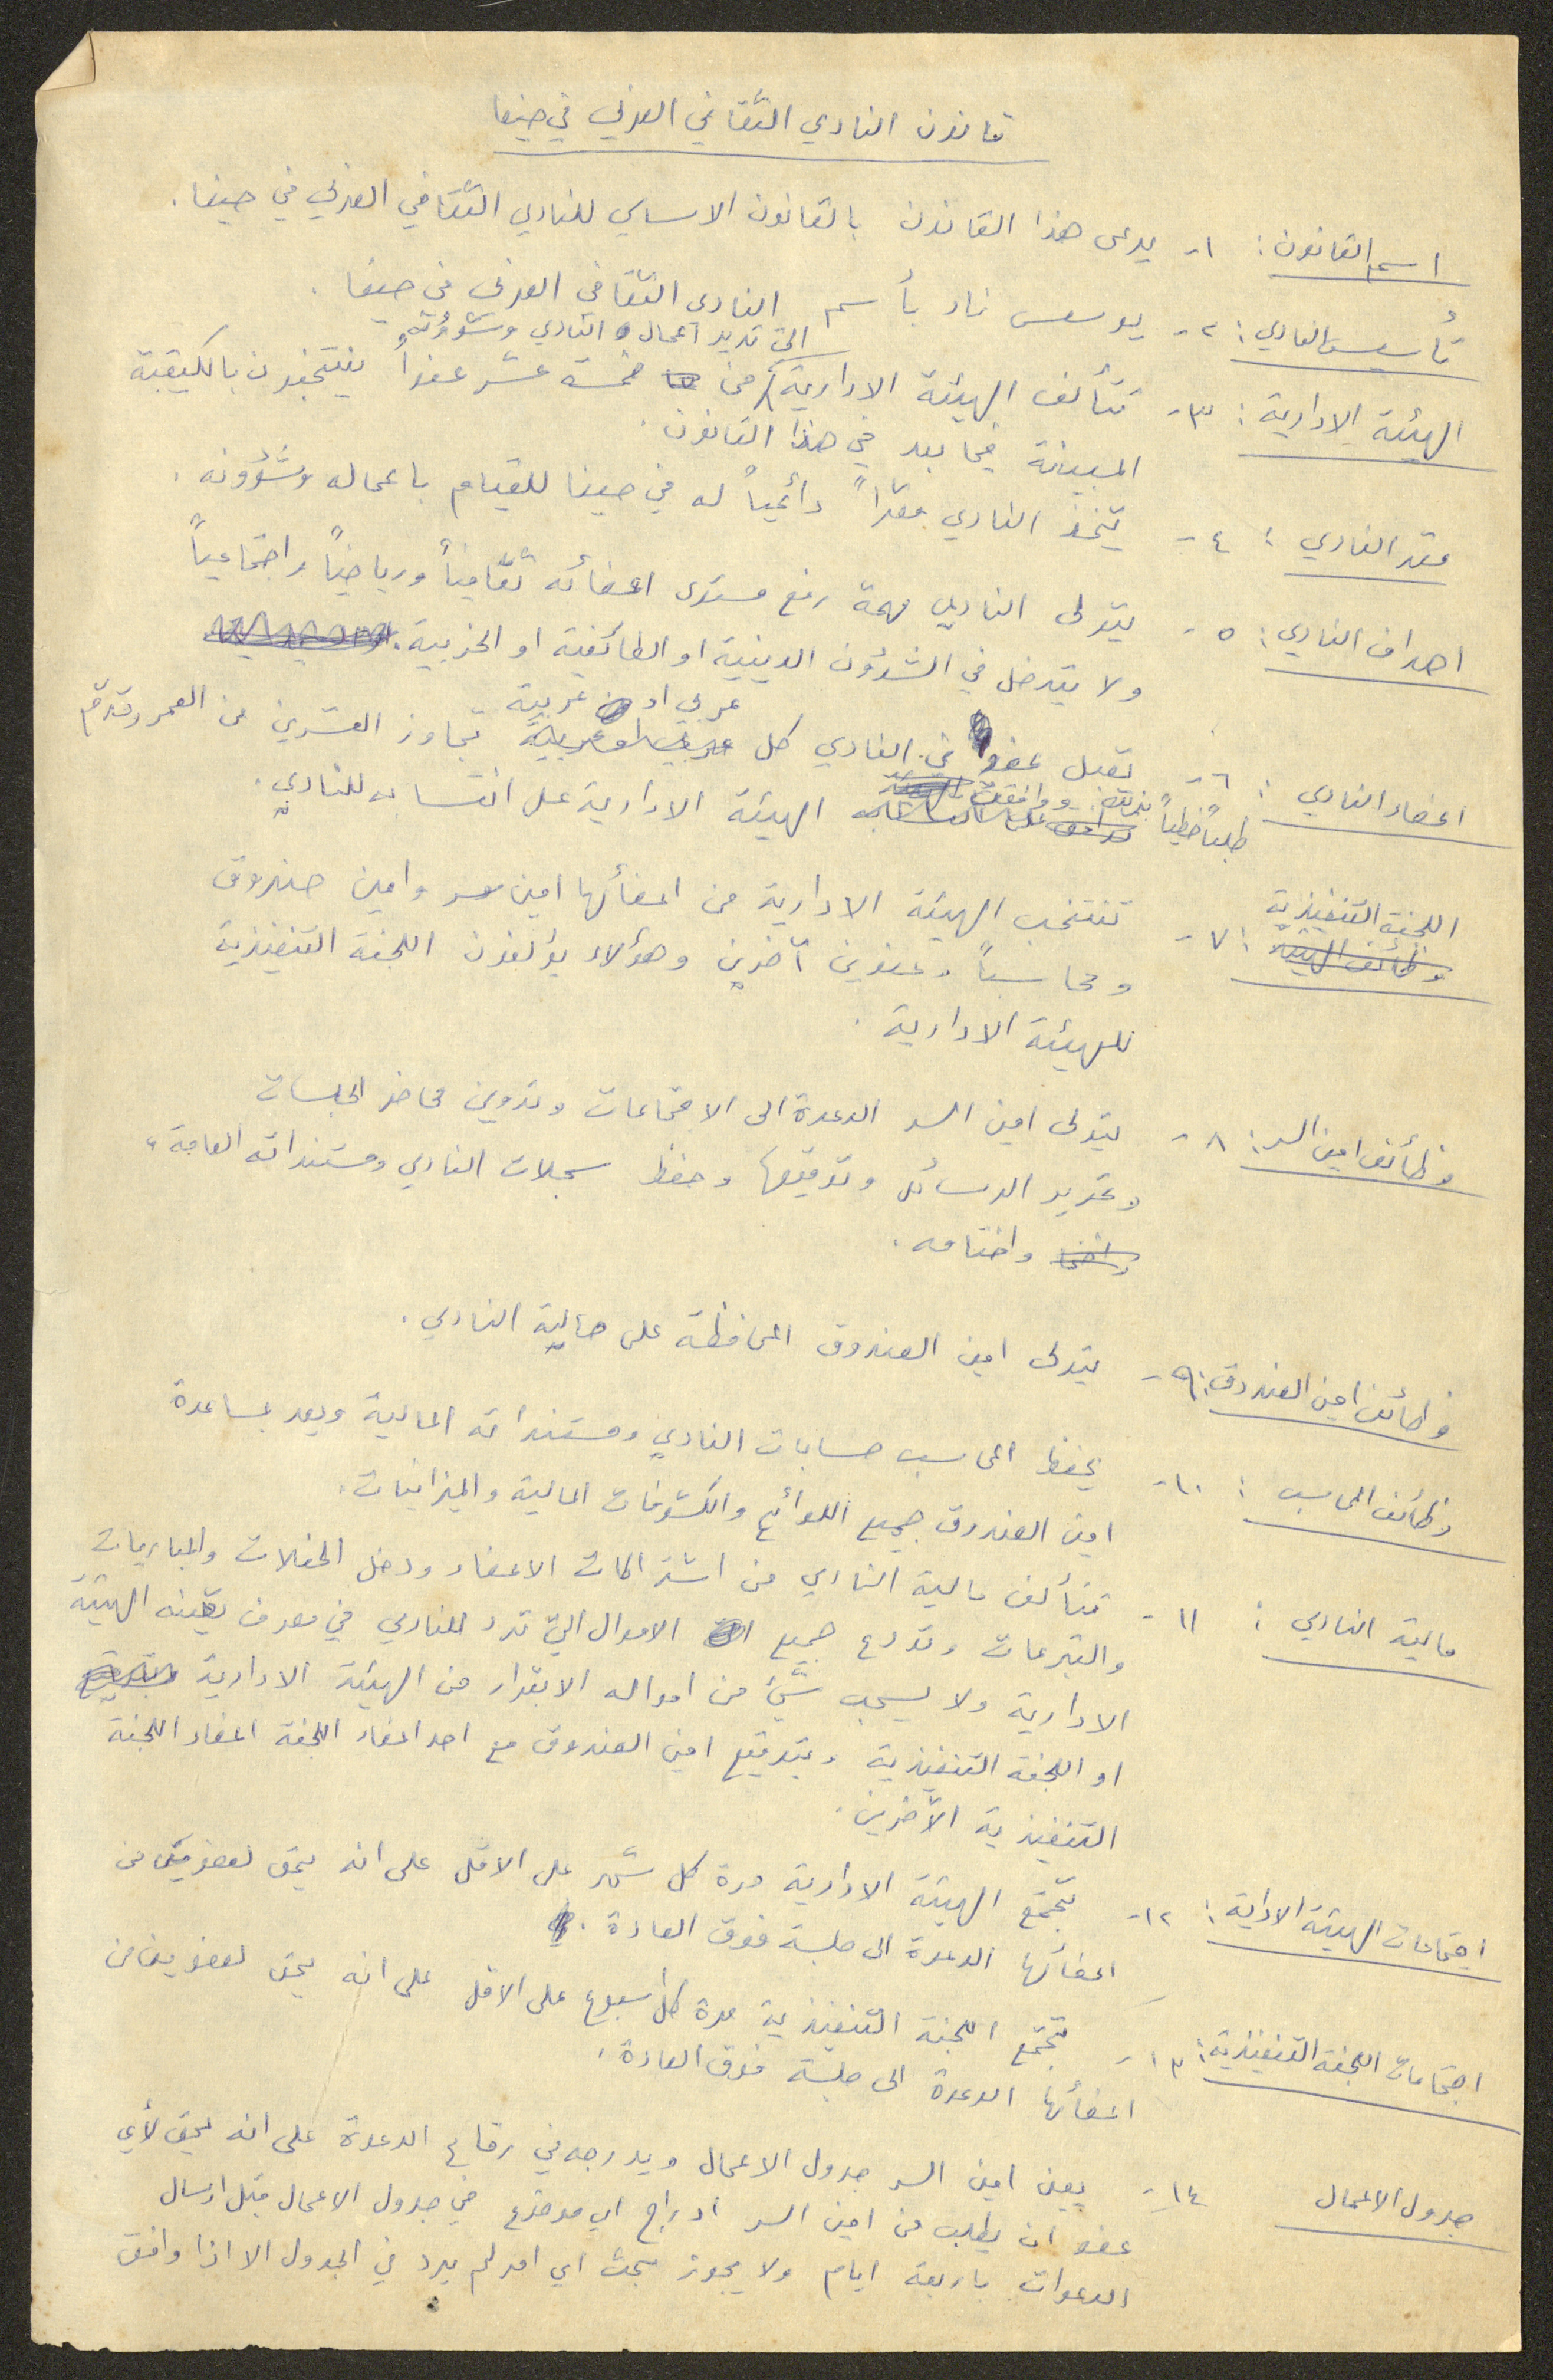 قانون النادي الثقافي العربي في حيفا
اسم القانون : ١- يدعى هذا القانون بالقانون الاساسي للنادي الثقافي العربي في حيفا .
تأسيس النادي : ٢- يؤسس ناد بأسم النادي الثقافي العربي في حيفا .
التي تدير اعمال النادي وشؤونه
الهيئة الادارية : ٣- تتألف الهيئة الادارية من خمسة عشر عضواً ينتخبون بالكيفية
المبينة فيما بعد في هذا القانون .
مقر النادي : ٤- يتخذ النادي مقراً دائمياً له في حيفا للقيام باعماله وشؤونه .
اهداف النادي : ٥- يتولى النادي مهمة رفع مستوى اعضائه ثقافياً ورياضياً واجتماعياً
ولا يتدخل في الشؤون الدينية او الطائفية او الحزبية .
عربي او عربية
اعضاء النادي : ٦- تقبل عضو في النادي كل عربي او عربية تجاوز العشرين من العمر وقدم
طلباً خطياً بذلك ووافقت الهيئة الادارية على انتسابه للنادي .
اللجنة التنفيذية
وظائف الهيئة : ٧- تنتخب الهيئة الادارية من اعضائها امين سر وامين صندوق
ومحاسباً وعضوين آخرين وهؤلاء يؤلفون اللجنة التنفيذية
للهيئة الادارية .
وظائف امين السر : ٨- يتولى امين السر الدعوة الى الاجتماعات وتدوين محاضر الجلسات
وتحرير الرسائل وتوقيعها وحفظ سجلات النادي ومستنداته العامة ،
واختامه .
وظائف امين الصندوق : ٩- يتولى امين الصندوق المحافظة على مالية النادي .
وظائف المحاسب : ١٠- يحفظ المحاسب حسابات النادي ومستنداته المالية ويعد بمساعدة
امين الصندوق جميع اللوائح والكشوفات المالية والميزانيات .
مالية النادي : ١١- تتألف مالية النادي من اشتراكات الاعضاء ودخل الحفلات والمباريات
والتبرعات وتودع جميع الاموال التي ترد للنادي في مصرف تعينه الهيئة
الادارية ولا يسحب شيء من امواله الا بقرار من الهيئة الادارية
او اللجنة التنفيذية وبتوقيع امين الصندوق مع احد اعضاء اللجنة اعضاء اللجنة
التنفيذية الآخرين .
اجتماعات الهيئة الاداية : ١٢- تجتمع الهيئة الادارية مرة كل شهر على الاقل على انه يحق لعضوين من
اعضائها الدعوة الى جلسة فوق العادة .
اجتماعات اللجنة التنفيذية : ١٣- تجتمع اللجنة التنفيذية مرة كل اسبوع على الاقل على انه يحق لعضوين من
اعضائها الدعوة الى جلسة فوق العادة .
جدول الاعمال ١٤- يعين امين السر جدول الاعمال ويدرجه في رقاع الدعوة على انه يحق لأي
عضو ان يطلب من امين السر ادراج اي موضوع في جدول الاعمال قبل ارسال
الدعوات باربعة ايام ولا يجوز بحث اي امر لم يرد في الجدول الا اذا وافق